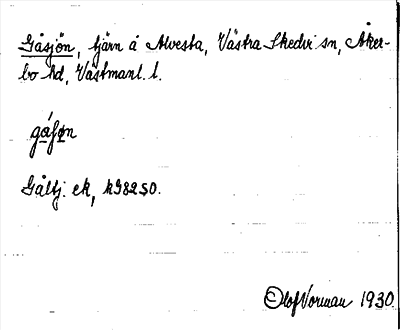 Gåsjön, tjärn å Alvesta, Västra Skedvi sn, Åker-
bo hd, Västmanl. l.
gåʃøn
Gåltj. ek, k982SO.
Olof Vorman 1930.